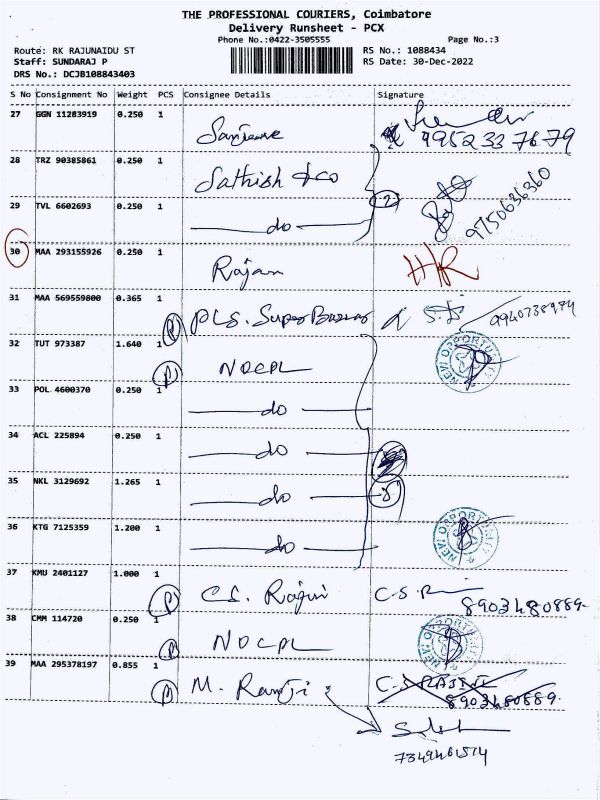 THE PROFESSIONAL COURIERS, Coimbatore
Delivery Runsheet - PCX
Phone No.:0422-3505555
Page No.:3
Route: RK RAJUNAIDU ST
RS No.: 1088434
Staff: SUNDARAJ P
RS Date: 30-Dec-2022
DRS No.: DCJB108843403
S No Consignment No Weight PCS Consignee Details Signature
27 GGN 11283919 0.250 1
9952337679
28 TRZ 90385861 0.250 1
Sathish & co
29 TVL 6602693 0.250 1
do
2
9750636360
30 MAA 293155926 0.250 1
Rajan
31 MAA 569559800 0.365 1
PLS. Super Bazaar
32 TUT 973387 1.640 1
NOCPL
33 POL 4600370 0.250 1
do
34 ACL 225894 0.250 1
do
35 NKL 3129692 1.265 1
do
36 KTG 7125359 1.200 1
do
37 KMU 2401127 1.000 1
C.S. Rajini
8903480889.
38 CMM 114720 0.250 1
NOCPL
39 MAA 295378197 0.855 1
M. Ramji
C.S RAJINI
8903480889.